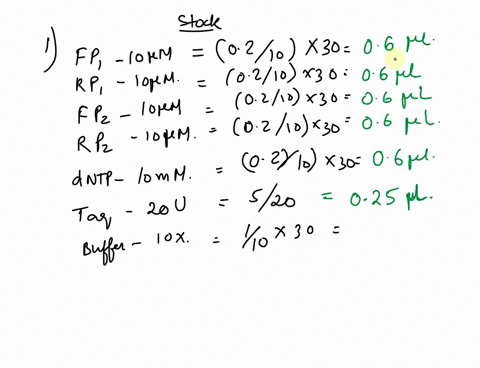 Stock
1) FP1 - 10 μM = (0.2/10) × 30 = 0.6 μl.
RP1 - 10μM. = (0.2/10) × 30 = 0.6 μl
FP2 - 10μM = (0.2/10) × 30 = 0.6 μl
RP2 - 10μM. = (0.2/10) × 30 = 0.6 μl.
dNTP - 10 mM. = (0.2/10) × 30 = 0.6 μl.
Taq - 20 U = 5/20 = 0.25 μl.
Buffer - 10X. = 1/10 × 30 =